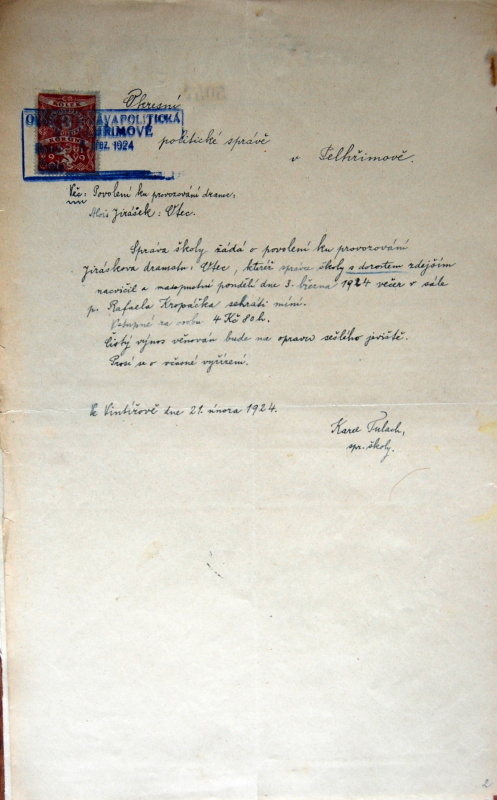 KOLEK
OKRESNÍ SPRÁVA POLITICKÁ
1924
Okresní
politické správě
v Pelhřimově.
Věc: Povolení ku provozování drama:
Alois Jirásek: Otec.
Správa školy žádá o povolení ku provozování
Jiráskova dramatu: Otec, kteréž správa školy s dorostem zdejším
nacvičil a masopustní pondělí dne 3. března 1924 večer v sále
p. Rafaela Kropáčka sehráti míní.
Vstupné za osobu 4 Kč 80 h.
Čistý výnos věnován bude na opravu sešlého jeviště.
Prosí se o včasné vyřízení.
dne 21. února 1924.
Karel Tulach,
spr. školy.
2